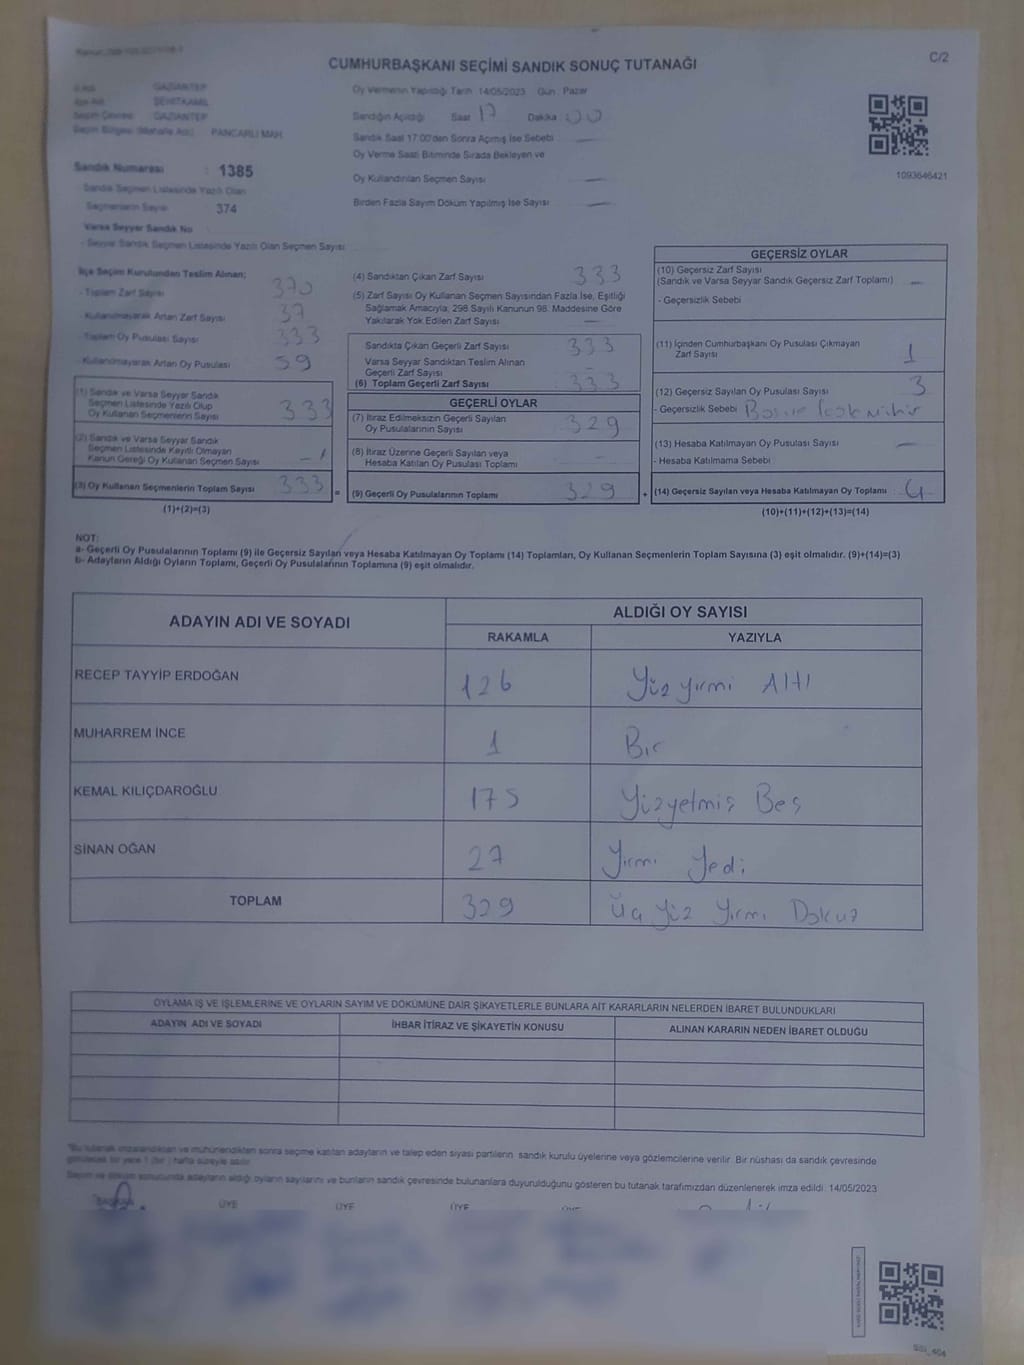 C/2
CUMHURBAŞKANI SEÇİMİ SANDIK SONUÇ TUTANAĞI
GAZİANTEP
ŞEHİTKAMİL
Seçim Çevresi GAZİANTEP
Seçim Bölgesi (Mahalle Adı) : PANCARLI MAH.
Sandık Numarası : 1385
Sandık Seçmen Listesinde Yazılı Olan
Seçmenlerin Sayısı 374
Varsa Seyyar Sandık No
- Seyyar Sandık Seçmen Listesinde Yazılı Olan Seçmen Sayısı:
Oy Vermenin Yapıldığı Tarih 14/05/2023 Gün : Pazar
Sandığın Açıldığı Saat 17 Dakika 00
Sandık Saat 17:00'den Sonra Açılmış İse Sebebi —
Oy Verme Saati Bitiminde Sırada Bekleyen ve
Oy Kullandırılan Seçmen Sayısı —
Birden Fazla Sayım Döküm Yapılmış İse Sayısı —
1093646421
İlçe Seçim Kurulundan Teslim Alınan;
- Toplam Zarf Sayısı 370
- Kullanılmayarak Artan Zarf Sayısı 37
- Toplam Oy Pusulası Sayısı 333
- Kullanılmayarak Artan Oy Pusulası 59
(1) Sandık ve Varsa Seyyar Sandık
Seçmen Listesinde Yazılı Olup
Oy Kullanan Seçmenlerin Sayısı 333
(2) Sandık ve Varsa Seyyar Sandık
Seçmen Listesinde Kayıtlı Olmayan
Kanun Gereği Oy Kullanan Seçmen Sayısı
(3) Oy Kullanan Seçmenlerin Toplam Sayısı 333 =
(1)+(2)=(3)
(4) Sandıktan Çıkan Zarf Sayısı 333
(5) Zarf Sayısı Oy Kullanan Seçmen Sayısından Fazla İse, Eşitliği
Sağlamak Amacıyla, 298 Sayılı Kanunun 98. Maddesine Göre
Yakılarak Yok Edilen Zarf Sayısı —
Sandıkta Çıkan Geçerli Zarf Sayısı 333
Varsa Seyyar Sandıktan Teslim Alınan
Geçerli Zarf Sayısı –
(6) Toplam Geçerli Zarf Sayısı 333
GEÇERLİ OYLAR
(7) İtiraz Edilmeksizin Geçerli Sayılan
Oy Pusulalarının Sayısı 329
(8) İtiraz Üzerine Geçerli Sayılan veya
Hesaba Katılan Oy Pusulası Toplamı –
(9) Geçerli Oy Pusulalarının Toplamı 329 +
GEÇERSİZ OYLAR
(10) Geçersiz Zarf Sayısı
(Sandık ve Varsa Seyyar Sandık Geçersiz Zarf Toplamı) –
- Geçersizlik Sebebi
(11) İçinden Cumhurbaşkanı Oy Pusulası Çıkmayan
Zarf Sayısı 1
(12) Geçersiz Sayılan Oy Pusulası Sayısı 3
- Geçersizlik Sebebi
(13) Hesaba Katılmayan Oy Pusulası Sayısı —
- Hesaba Katılmama Sebebi
(14) Geçersiz Sayılan veya Hesaba Katılmayan Oy Toplamı 4
(10)+(11)+(12)+(13)=(14)
NOT:
a- Geçerli Oy Pusulalarının Toplamı (9) ile Geçersiz Sayılan veya Hesaba Katılmayan Oy Toplamı (14) Toplamları, Oy Kullanan Seçmenlerin Toplam Sayısına (3) eşit olmalıdır. (9)+(14)=(3)
b- Adayların Aldığı Oyların Toplamı, Geçerli Oy Pusulalarının Toplamına (9) eşit olmalıdır.
ADAYIN ADI VE SOYADI ALDIĞI OY SAYISI
RAKAMLA YAZIYLA
RECEP TAYYİP ERDOĞAN 126 Yüz yirmi Altı
MUHARREM İNCE 1 Bir
KEMAL KILIÇDAROĞLU 175 Yüzyetmiş Beş
SİNAN OĞAN 27 Yirmi Yedi
TOPLAM 329 Üç Yüz Yirmi Dokuz
OYLAMA İŞ VE İŞLEMLERİNE VE OYLARIN SAYIM VE DÖKÜMÜNE DAİR ŞİKAYETLERLE BUNLARA AİT KARARLARIN NELERDEN İBARET BULUNDUKLARI
ADAYIN ADI VE SOYADI İHBAR İTİRAZ VE ŞİKAYETİN KONUSU ALINAN KARARIN NEDEN İBARET OLDUĞU
*Bu tutanak imzalandıktan ve mühürlendikten sonra seçime katılan adayların ve talep eden siyasi partilerin sandık kurulu üyelerine veya gözlemcilerine verilir. Bir nüshası da sandık çevresinde
görülecek bir yere 1 (bir ) hafta süreyle asılır.
Sayım ve döküm sonucunda adayların aldığı oyların sayılarını ve bunların sandık çevresinde bulunanlara duyurulduğunu gösteren bu tutanak tarafımızdan düzenlenerek imza edildi. 14/05/2023
BAŞKAN ÜYE ÜYE ÜYE ÜYE